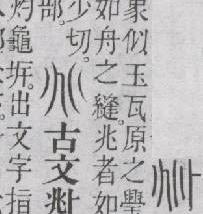 象似玉瓦原之
如舟之縫。兆者如
少切。
部。
兆古文𠧞
灼龜坼。出文字